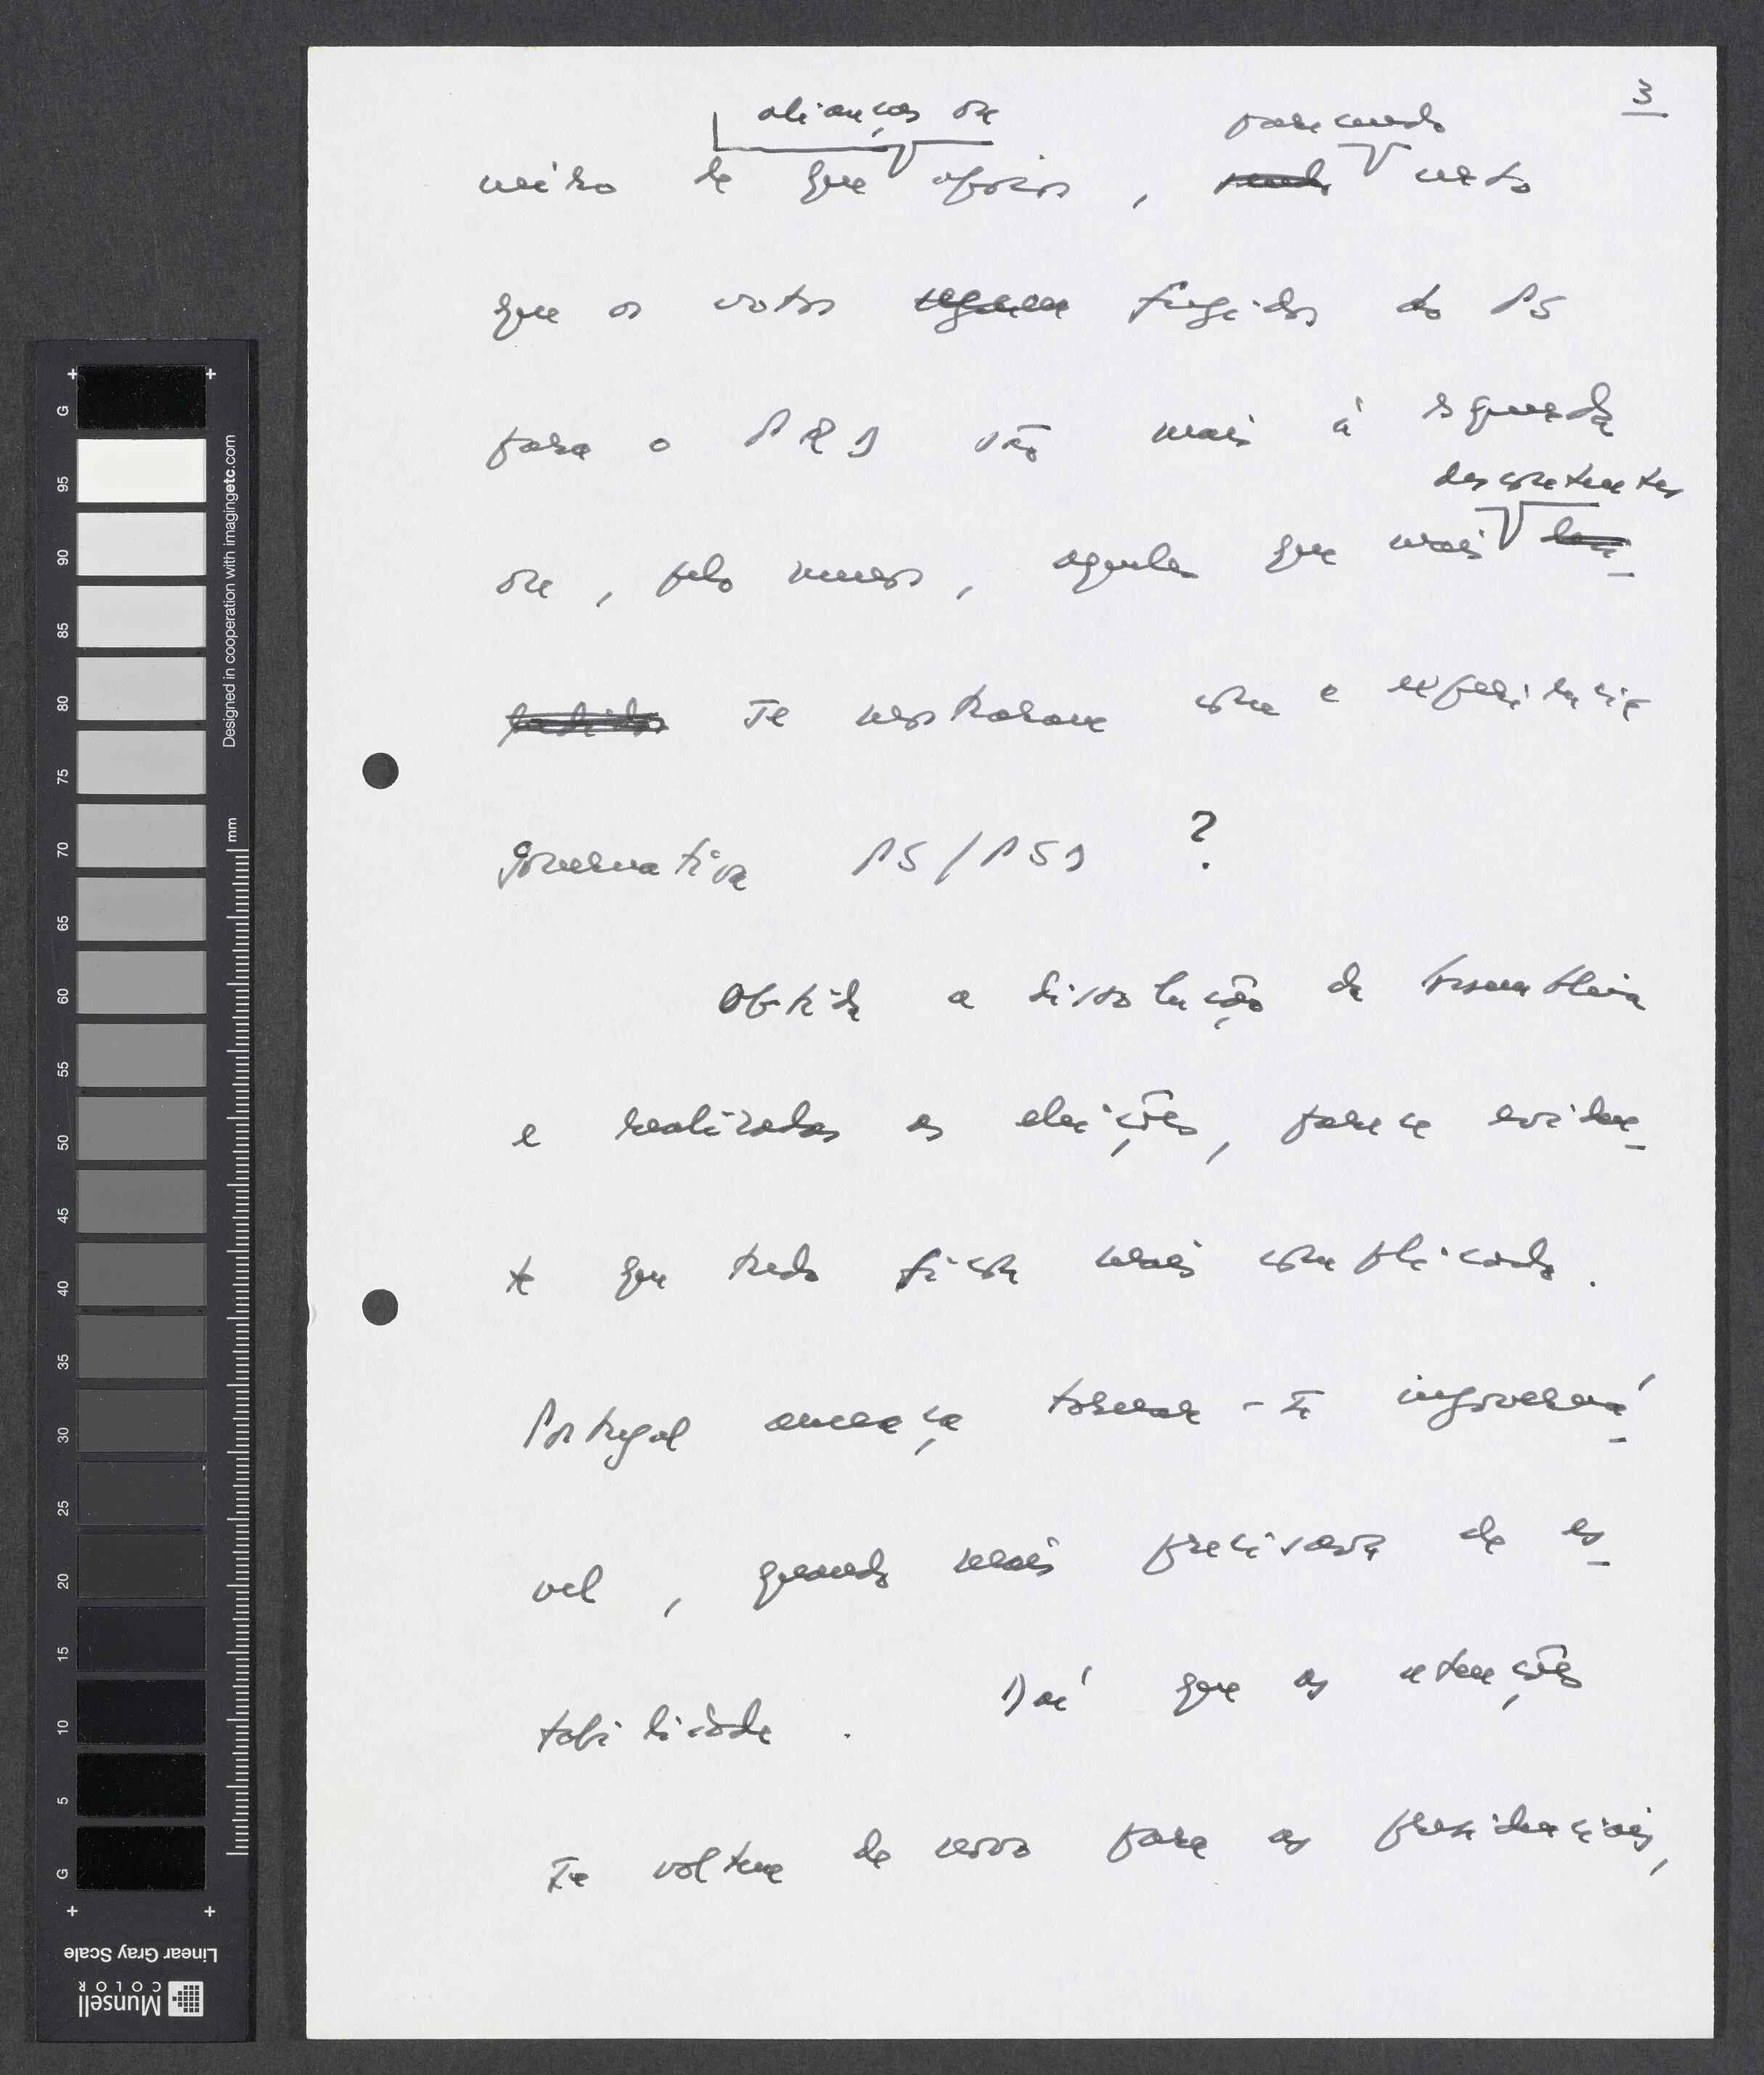 3
alianças ou
parecendo
neiro de que apoios, sendo certo
que os votos seguem fugidos do PS
para o PRD são mais à esquerda
descontentes
ou, pelo menos, aqueles que mais
se mostraram com a experiência
governativa PS/PSD ?
Obtida a dissolução da Assembleia
e realizadas as eleições, parece eviden-
te que tudo ficou mais complicado.
Portugal ameaça tornar-se ingoverná-
vel, quando mais precisava de es-
tabilidade. Daí que as atenções
se voltem de novo para as presidenciais,
G
95
90
85
80
75
70
65
60
55
50
45
40
35
30
25
20
15
10
5
G
mm
Designed in cooperation with imagingetc.com
Linear Gray Scale
Munsell
COLOR